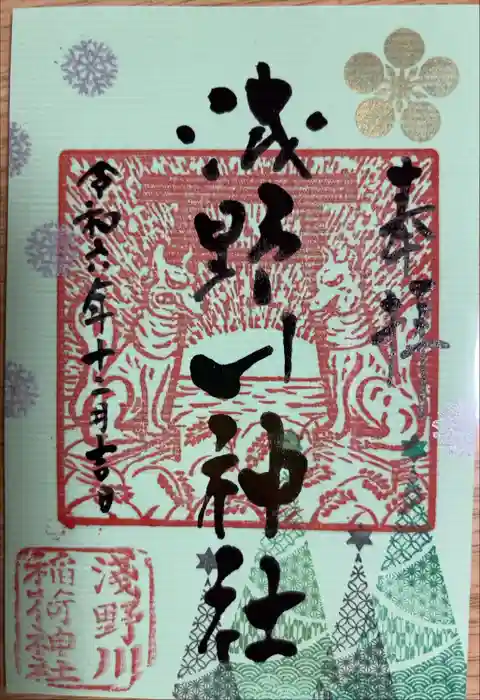 奉拝
浅野川神社
令和六年十二月吉日
淺野川
稲荷神社